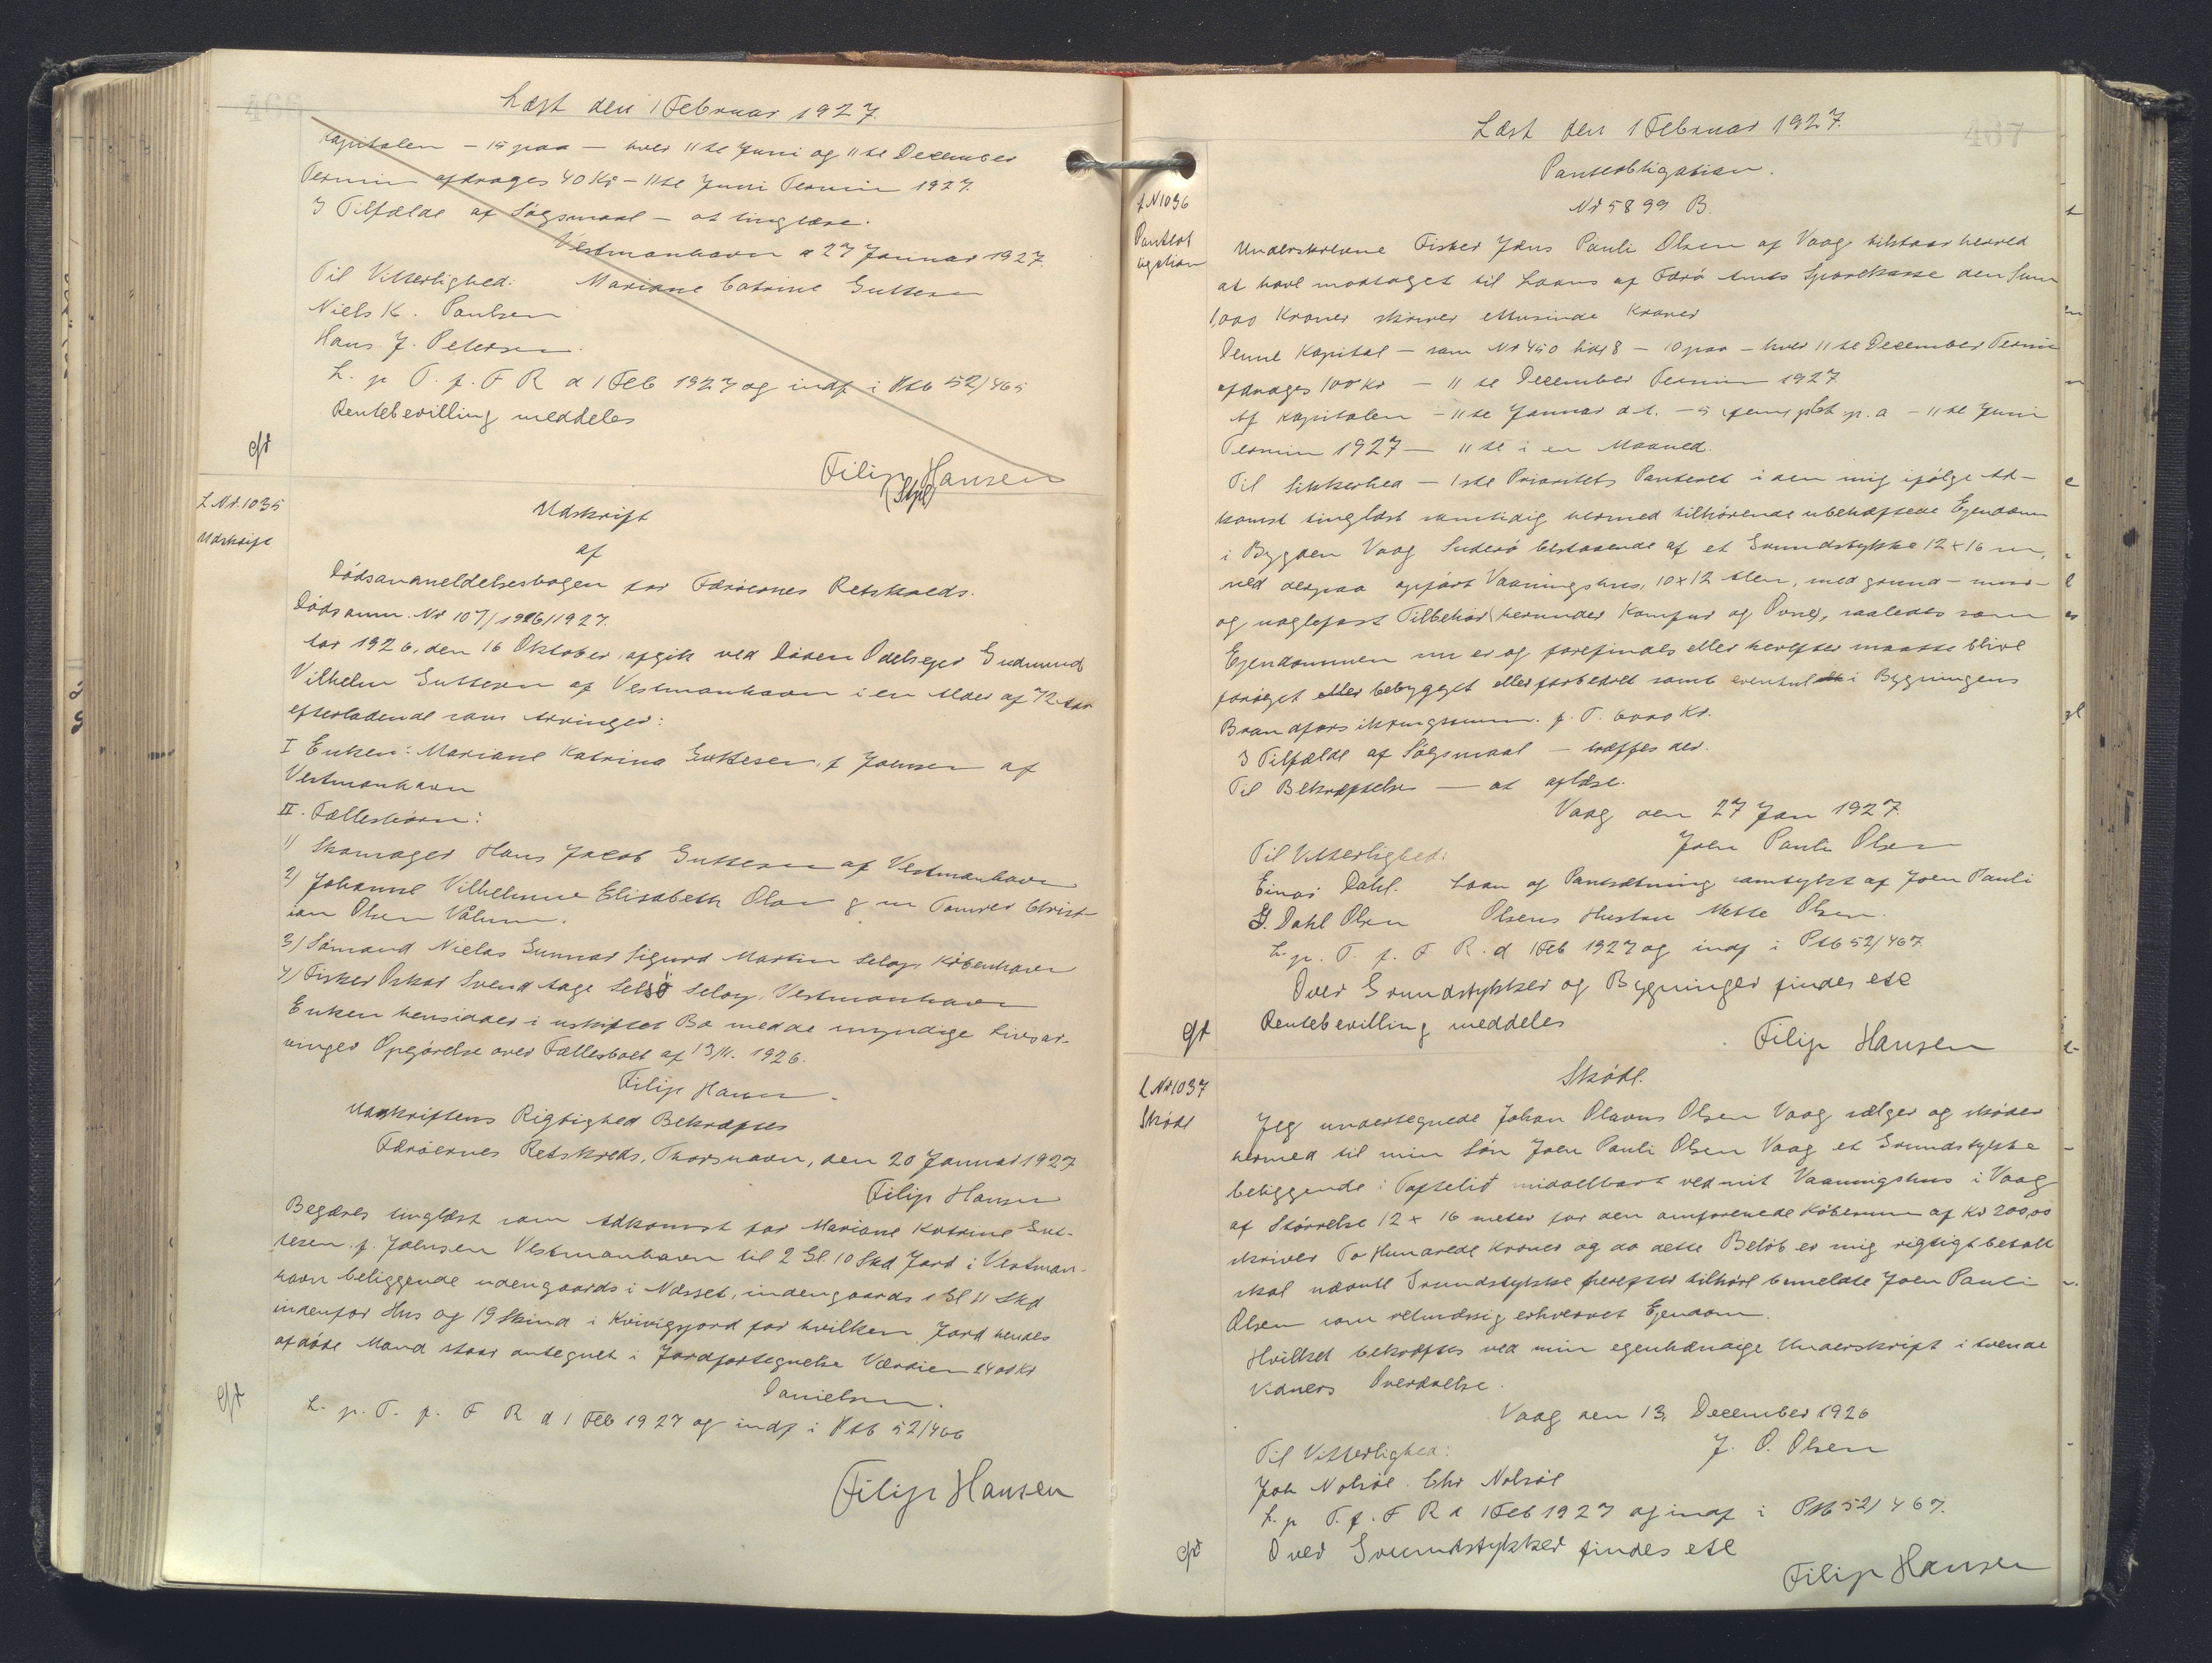 466
Læst den 1 Februar 1927.
Kapitalen – 15 paa – hver 11te Juni og 11te December
Termin afdrages 40 Kr – 11te Juni Termin 1927.
I Tilfælde af Søgsmaal – at tinglæse.
Vestmanhavn d 27 Januar 1927.
Til Vitterlighed: Mariane Catrine Guttesen
Niels K. Poulsen
Hans J. Petersen.
L. p T. f. F R d 1 Feb 1927 og indf i Ptb 52/465
Rentebevilling meddeles
Filip Hansen
L Nr. 1035
Udskrift
Udskrift
af
Dødsanmeldelsesbogen for Færøernes Retskreds.
Dødsanm. Nr 107/1926/1927.
Aar 1926, den 16 Oktober, afgik ved Døden Odelsejer Gudmund
Vilhelm Guttesen af Vestmanhavn i en Alder af 72 Aar
efterladende som Arvinger:
I Enken: Mariane Katrina Guttesen, f Joensen af
Vestmanhavn
II. Fællesbørn:
1) Skomager Hans Jacob Guttesen af Vestmanhavn
2) Johanne Vilhelmine Elisabeth Olsen g m Tømrer Christ-
ian Olsen Vålum.
3) Sømand Nielas Gunnar Sigurd Martin Seloy, København
4) Fisker Oskar Svend Aage Selsö Seloy, Vestmanhavn
Enken hensidder i uskiftet Bo med de myndige Livsar-
vinger Opgørelse over Fællesboet af 13/11. 1926.
Filip Hansen.
Udskriftens Rigtighed Bekræftes
Færøernes Retskreds, Thorshavn, den 20 Januar 1927
Filip Hansen
Begæres tinglæst som Adkomst for Mariane Katrine Gut-
tesen f. Joensen Vestmanhavn til 2 Gl. 10 Skd Jord i Vestman-
havn beliggende udengaards i Næsset, indengaards 1 Gl 11 Skd
indenfor Hus og 19 Skind i Kvivigjord for hvilken Jord hendes
afdøde Mand staar antegnet i Jordfortegnelse Værdien 2400 Kr
Danielsen.
L. p. T. f. F R d 1 Feb 1927 og indf i Ptb 52/466
Filip Hansen
467
Læst den 1 Februar 1927.
Panteobligation.
Nr 5899 B.
L N 1036
Panteob
ligation
Underskrevne Fisker Jens Pauli Olsen af Vaag tilstaar herved
at have modtaget til Laans af Færø Amts Sparekasse den Sum
1,000 Kroner skriver ettusinde Kroner
Denne Kapital – som Nr 450 Litr 8 – 10 paa – hver 11te December Termin
afdrages 100 Kr – 11te December Termin 1927
Af Kapitalen – 11te Januar d. A. – 5 fem pCt p. a – 11te Juni
Termin 1927 – 11te i en Maaned.
Til Sikkerhed – 1ste Prioritets Panteret i den mig ifølge Ad-
komst tinglæst samtidig hermed tilhørende ubehæftede Ejendom
i Bygden Vaag Suderø bestaaende af et Grundstykke 12 x 16 m,
med derpaa opført Vaaningshus, 10 x 12 Alen, med grund- mur-
og naglefast Tilbehør (herunder Komfur og Ovne), saaledes som
Ejendommen nu er og forefindes eller herefter maatte blive
forøget eller bebygget eller forbedret samt eventuel i Bygningens
Brandforsikringssum. p. T. 6000 Kr.
I Tilfælde af Søgsmaal – træffes der.
Til Bekræftelse – at aflæse.
Vaag den 27 Jan 1927.
Til Vitterlighed: Joen Pauli Olsen
Einar Dahl. Laan og Pantsætning samtykt af Joen Pauli
J. Dahl Olsen Olsens Hustru Mette Olsen.
L. p. T. f. F R. d 1 Feb 1927 og indf i Ptb 52/467.
Over Grundstykker og Bygninger findes ete
Rentebevilling meddeles
Filip Hansen
L Nr 1037
Skøde
Skøde.
Jeg undertegnede Johan Olavus Olsen Vaag sælger og skøder
hermed til min Søn Joen Pauli Olsen Vaag et Grundstykke
beliggende i Toftelid middelbart ved mit Vaaningshus i Vaag
af Størrelse 12 x 16 meter for den omforenede Købesum af Kr 200,00
skriver To Hundrede Kroner og da dette Beløb er mig rigtigt betalt
skal nævnte Grundstykke herefter tilhøre bemeldte Joen Pauli
Olsen som retmæssig erhvervet Ejendom.
Hvilket bekræftes ved min egenhændige Underskrift i tvende
Vidners Overværelse.
Vaag den 13. December 1926
Til Vitterlighed: J. O. Olsen
Joh Nolsøe. Chr Nolsøe
L. p T. f. F R d 1 Feb 1927 og indf i Ptb 52/467.
Over Grundstykker findes ete
Filip Hansen